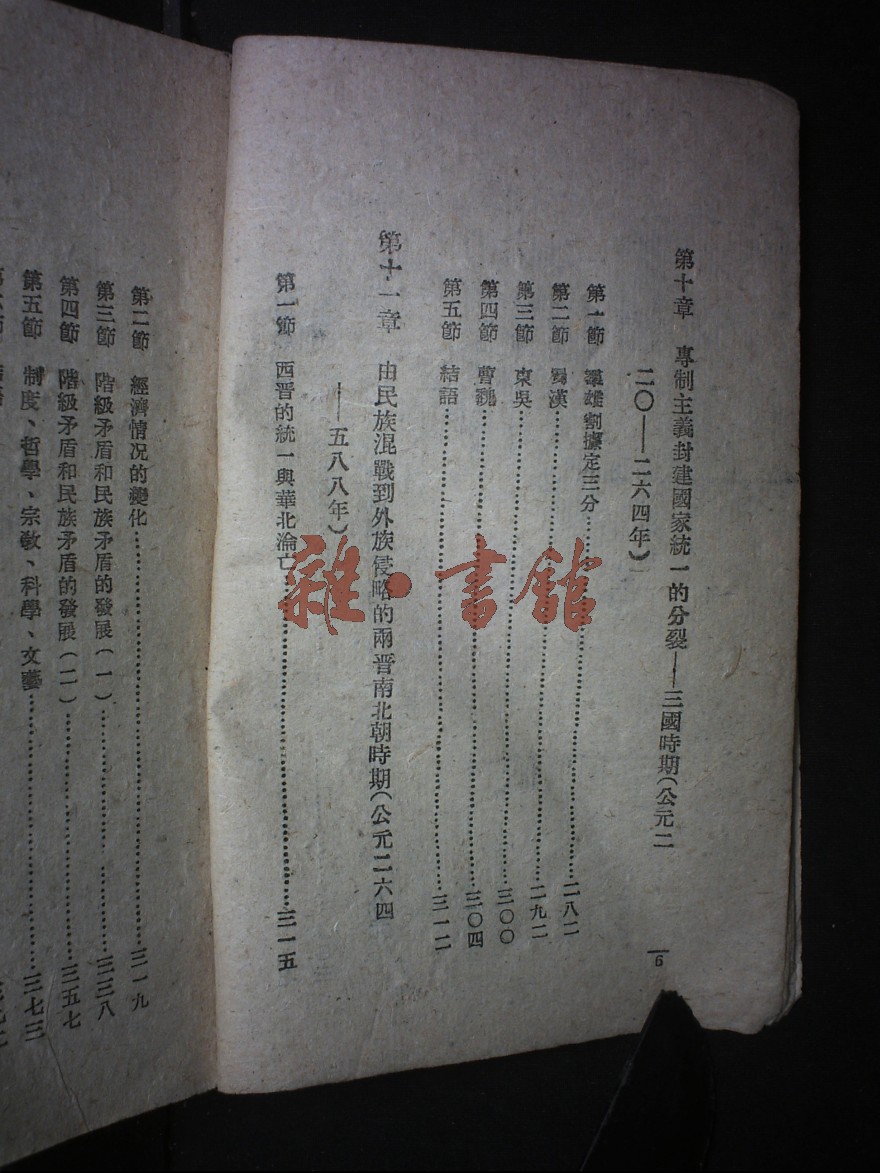 第十章　專制主義封建國家統一的分裂——三國時期(公元二
二〇——二六四年)
第一節　羣雄割據定三分…………二八二
第二節　蜀漢…………二九二
第三節　東吳…………三〇〇
第四節　曹魏…………三〇四
第五節　結語…………三一二
第十一章　由民族混戰到外族侵略的兩晉南北朝時期(公元二六四
——五八八年)
第一節　西晉的統一與華北淪亡…………三一五
6
第二節　經濟情况的變化…………三一九
第三節　階級矛盾和民族矛盾的發展(一)…………三三八
第四節　階級矛盾和民族矛盾的發展(二)…………三五七
第五節　制度、哲學、宗敎、科學、文藝…………三七三
雜·書館